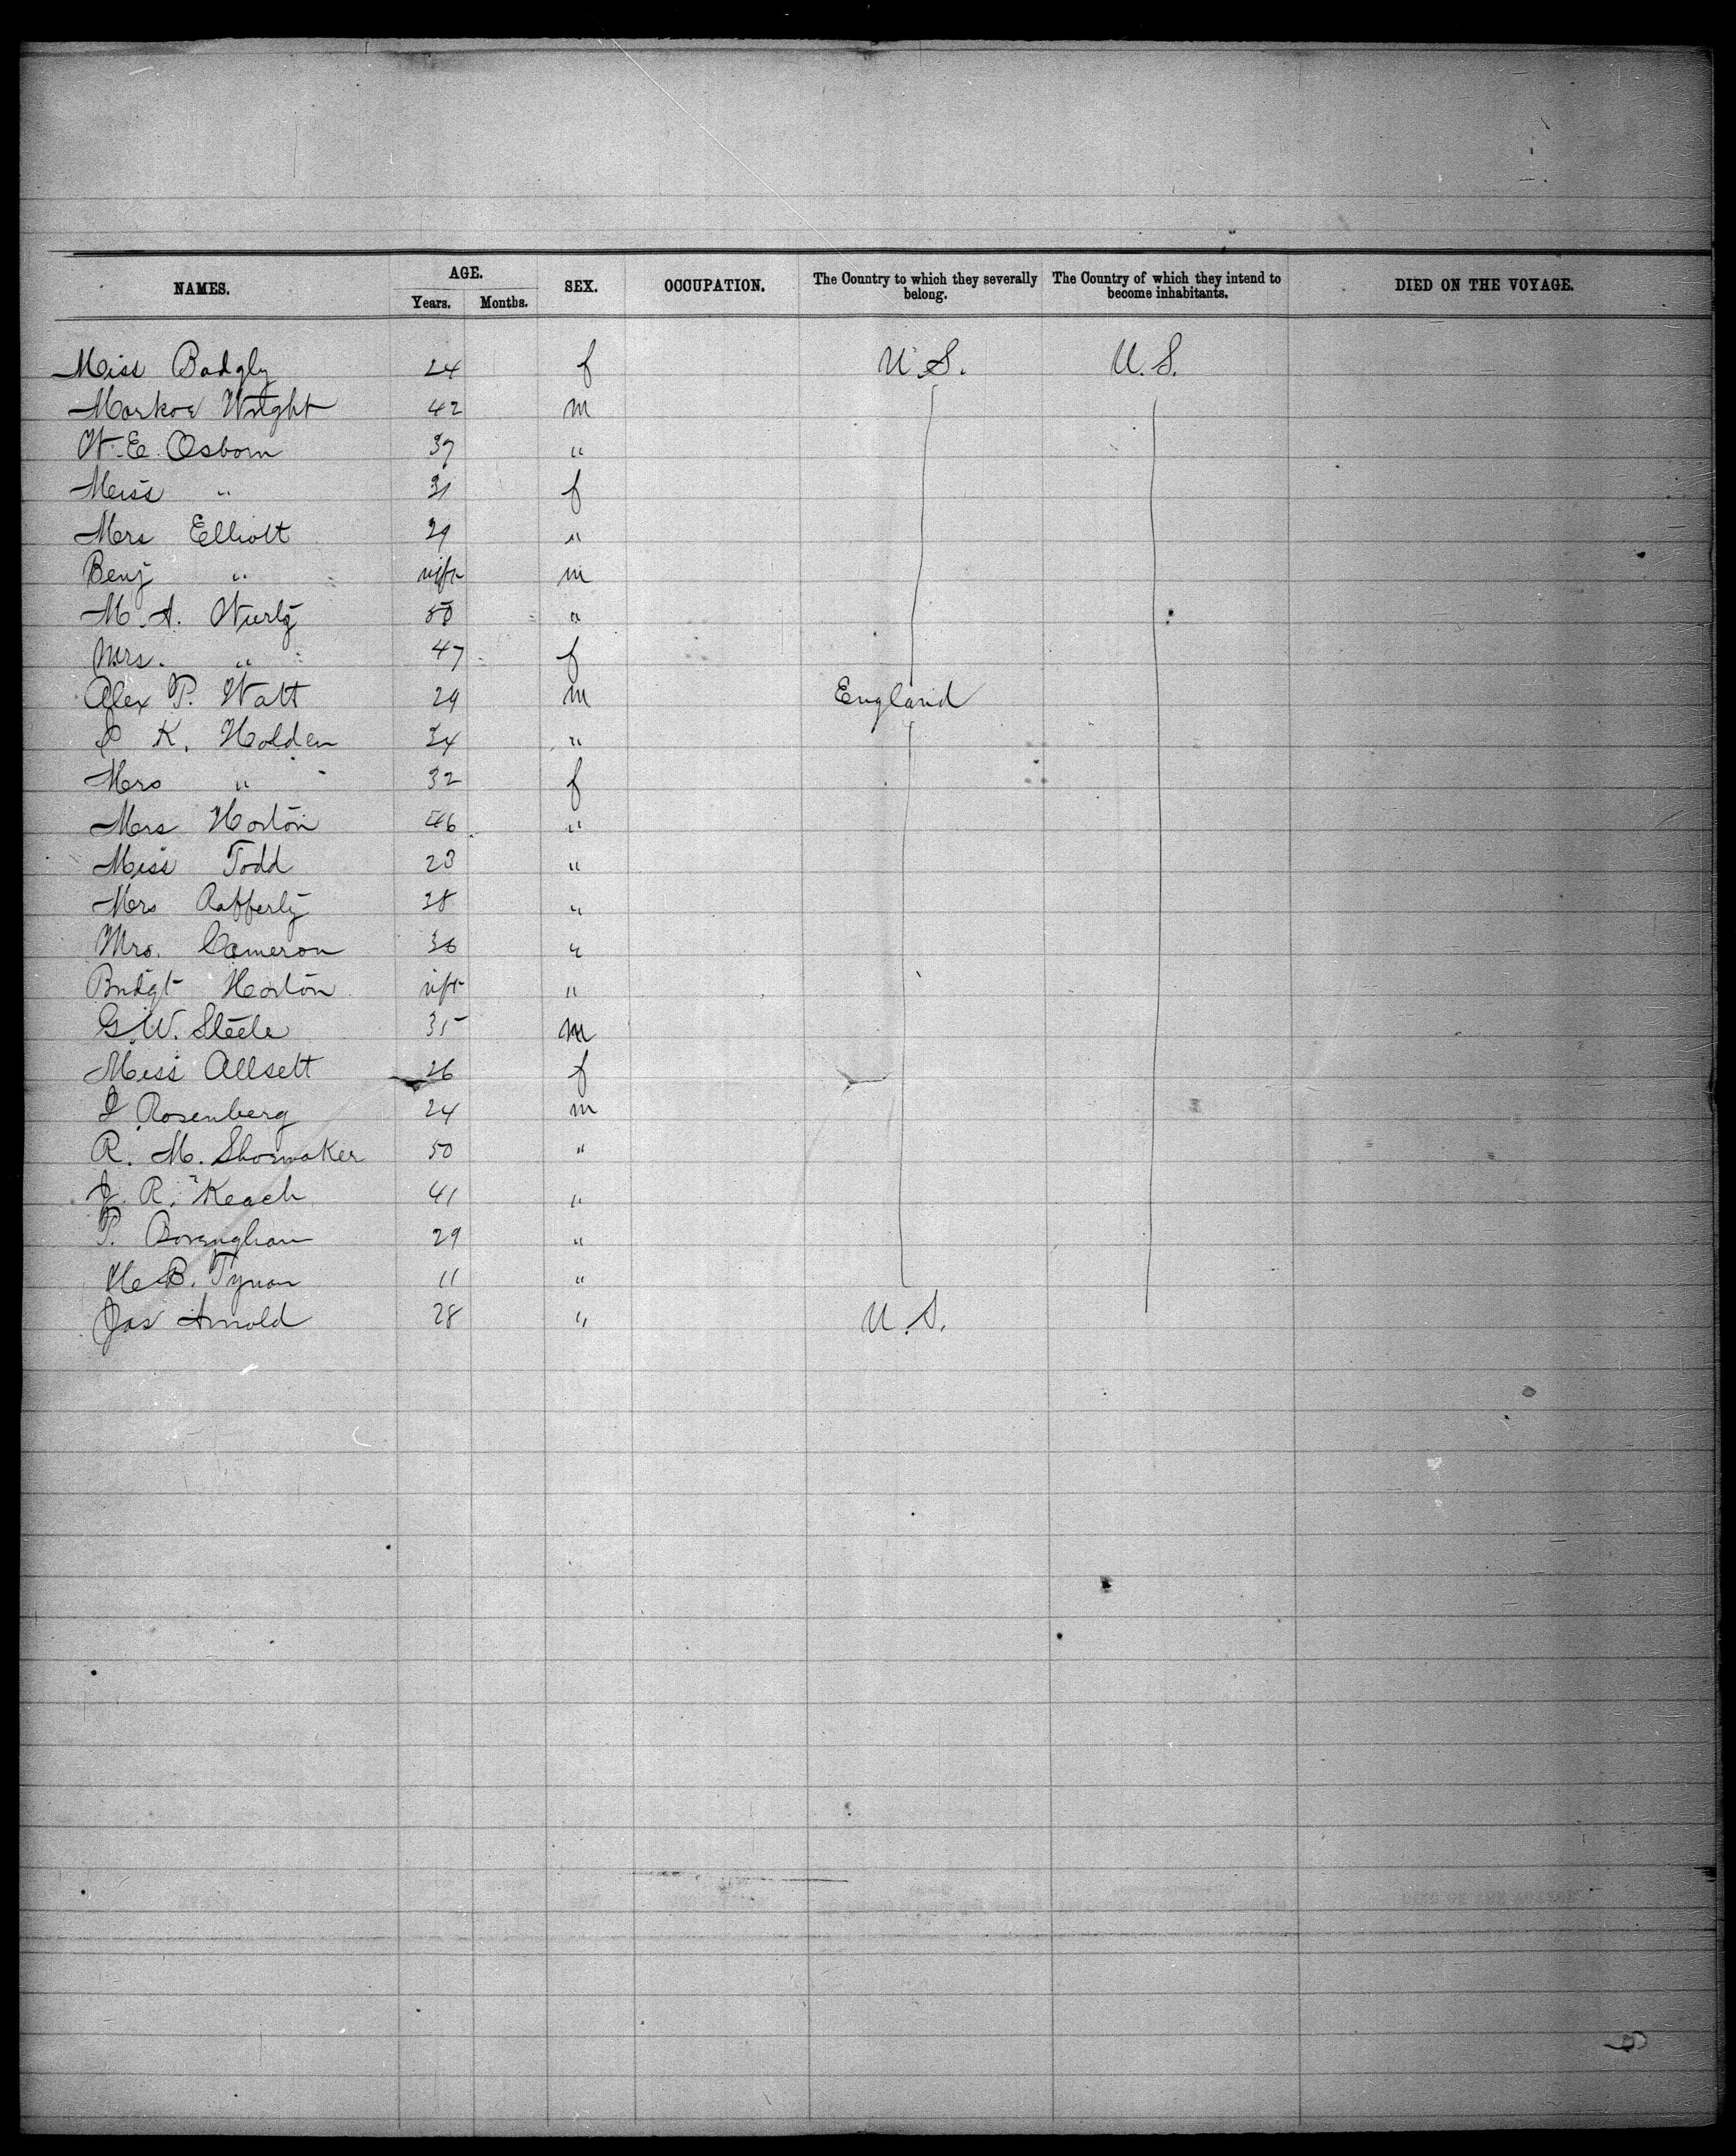 NAMES. AGE. SEX. OCCUPATION. The Country to which they severally belong. The Country of which they intend to become inhabitants. DIED ON THE VOYAGE.
Years. Months.
Miss Badgly 24 f U.S. U.S.
Markoe Wright 42 m
W. E. Osborn 37 "
Miss " 31 f
Mrs Elliott 29 "
Benj " inft m
M. A. Wurtz 50 "
Mrs. " 47 f
Alex P. Watt 29 m England
K. Holden 34 "
Mrs " 32 f
Mrs Horton 46 "
Miss Todd 23 "
Mrs Rafferty 28 "
Mrs. Cameron 36 "
Bridgt Horton inft "
G. W. Steele 35 m
Miss Allsett 26 f
I Rosenberg 24 m
R. M. Shoemaker 50 "
J. R. Keach 41 "
P. 29 "
H B. Tynan 11 "
Jas Arnold 28 " U.S.